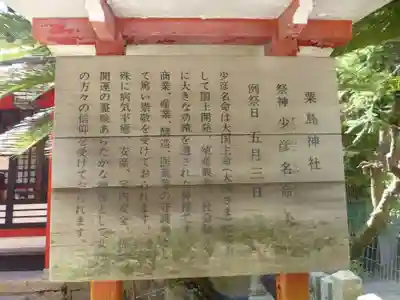 粟島神社
祭神 少彦名命
例祭日 五月三日
少彦名命は大国主命（大
して国土開発、殖産興
に大きな功績を遺された神様です
商業、産業、醸造、医薬業の守護神
て篤い崇敬を受けておられます。
殊に病気平癒、安産、家内安全、
開運の霊験あらたかな神様として
の方々の信仰を受けております。